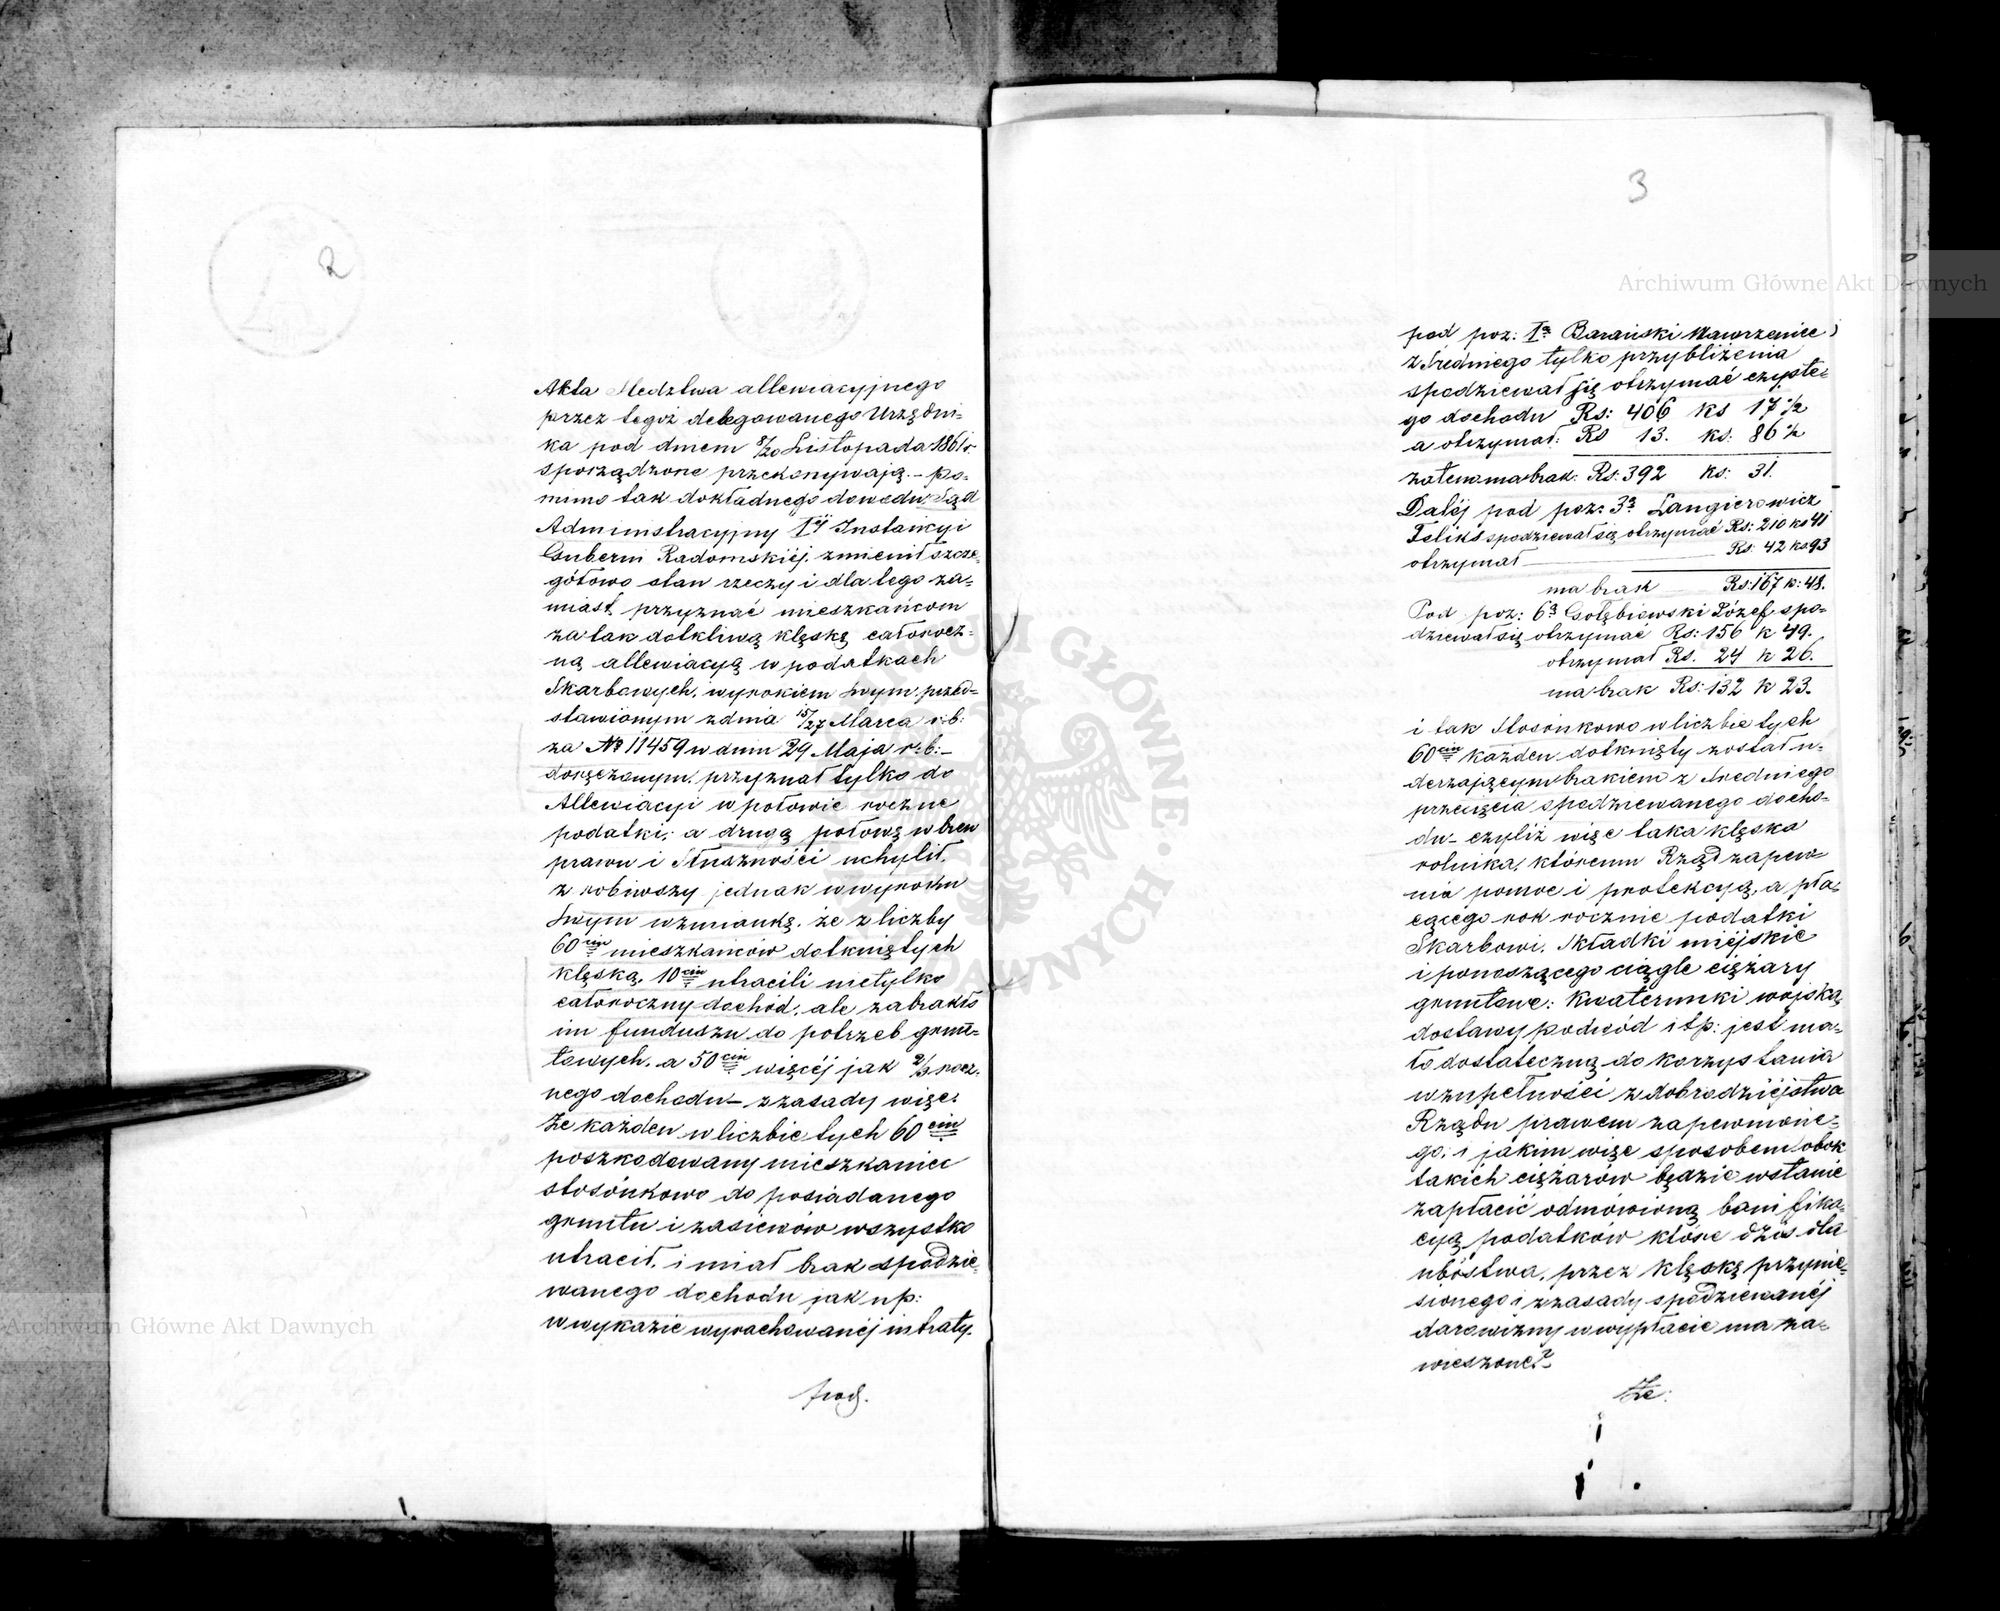 2
Akta Sledztwa allewiacyjnego
przez tegoż delegowanego Urzędni=
ka pod dniem 8/20 Listopada 1861 r.
sporządzone przekonywają. – po=
mimo tak dokładnego dowodu, Sąd
Administracyjny Iej Instancyi
Gubernii Radomskiej, zmienił szcze=
gółowo stan rzeczy i dla tego za=
miast przyznać mieszkańcom
za tak dotkliwą klęskę całorocz=
ną allewiacyą w podatkach
Skarbowych, wyrokiem swym przed=
stawionym z dnia 15/27 Marca r:b:
za No 11459 w dniu 29 Maja r:b: –
doręczonym, przyznał tylko do
Allewiacyi w połowie roczne
podatki; a drugą połowę wbrew
prawu i Słuszności uchylił.
zrobiwszy jednak w wyroku
swym wzmiankę, że z liczby
60ciu mieszkańców dotkniętych
klęską, 10ciu utracili nietylko
całoroczny dochód, ale zabrakło
im funduszu do potrzeb grun=
towych, a 50ciu więcéj jak 2/3 rocz=
nego dochodu – z zasady więc,
że każden w liczbie tych 60ciu
poszkodowany mieszkaniec
stosónkowo do posiadanego
gruntu i zasiewów wszystko
utracił, i miał brak spodzie=
wanego dochodu jak np:
w wykazie wyrachowanéj intraty.
pod.
3
pod poz: 1a Barański Wawrzeniec
z średniego tylko przybliżenia
spodziewał się otrzymać czyste=
go dochodu Rs: 406 ks 17 1/2
a otrzymał: Rs 13. ks: 86 1/2
zatem ma brak: Rs: 392 ks: 31.
Daléj pod poz: 3a Langierowicz
Feliks spodziewał się otrzymać Rs: 210 ks 41
otrzymał Rs: 42 ks 93
ma brak Rs: 167 k: 48.
Pod poz: 6a Gołębiowski Józef spo=
dziewał się otrzymać Rs: 156 k 49.
otrzymał Rs. 24 k 26.
ma brak Rs: 132 k 23.
i tak Stosónkowo w liczbie tych
60ciu każden dotknięty został u=
derzającym brakiem z średniego
przecięcia spodziewanego docho=
du – czyliż więc taka klęska
rolnika, któremu Rząd zapew=
nia pomoc i protekcyą, a pła=
cącego rok rocznie podatki
Skarbowi, Składki miejskie
i ponoszącego ciągle ciężary
gruntowe: Kwaterunki wojska,
dostawy podwód itp: jest ma=
ło dostateczną do korzystania
w zupełności z dobrodziejstwa
Rządu prawem zapewnione=
go; i jakim więc sposobem obok
takich ciężarów będzie wstanie
zapłacić odmówioną bonifika=
cyą podatków które dziś dla
ubóstwa, przez klęskę przynie=
sionego i z zasady spodziewanéj
darowizny w wypłacie ma za=
wieszone? –
Że:
Archiwum Główne Akt Dawnych
Archiwum Główne Akt Dawnych
GŁÓWNE
DAWNYCH